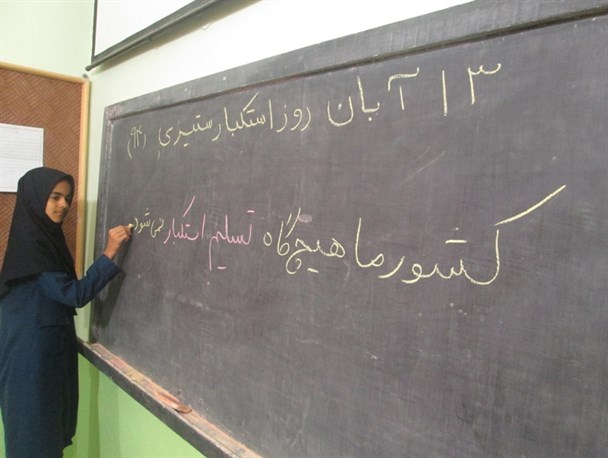 ۱۳ آبان روز استکبارستیزی (۹۴)
کشور ما هیچ گاه تسلیم استکبار نمی شود.